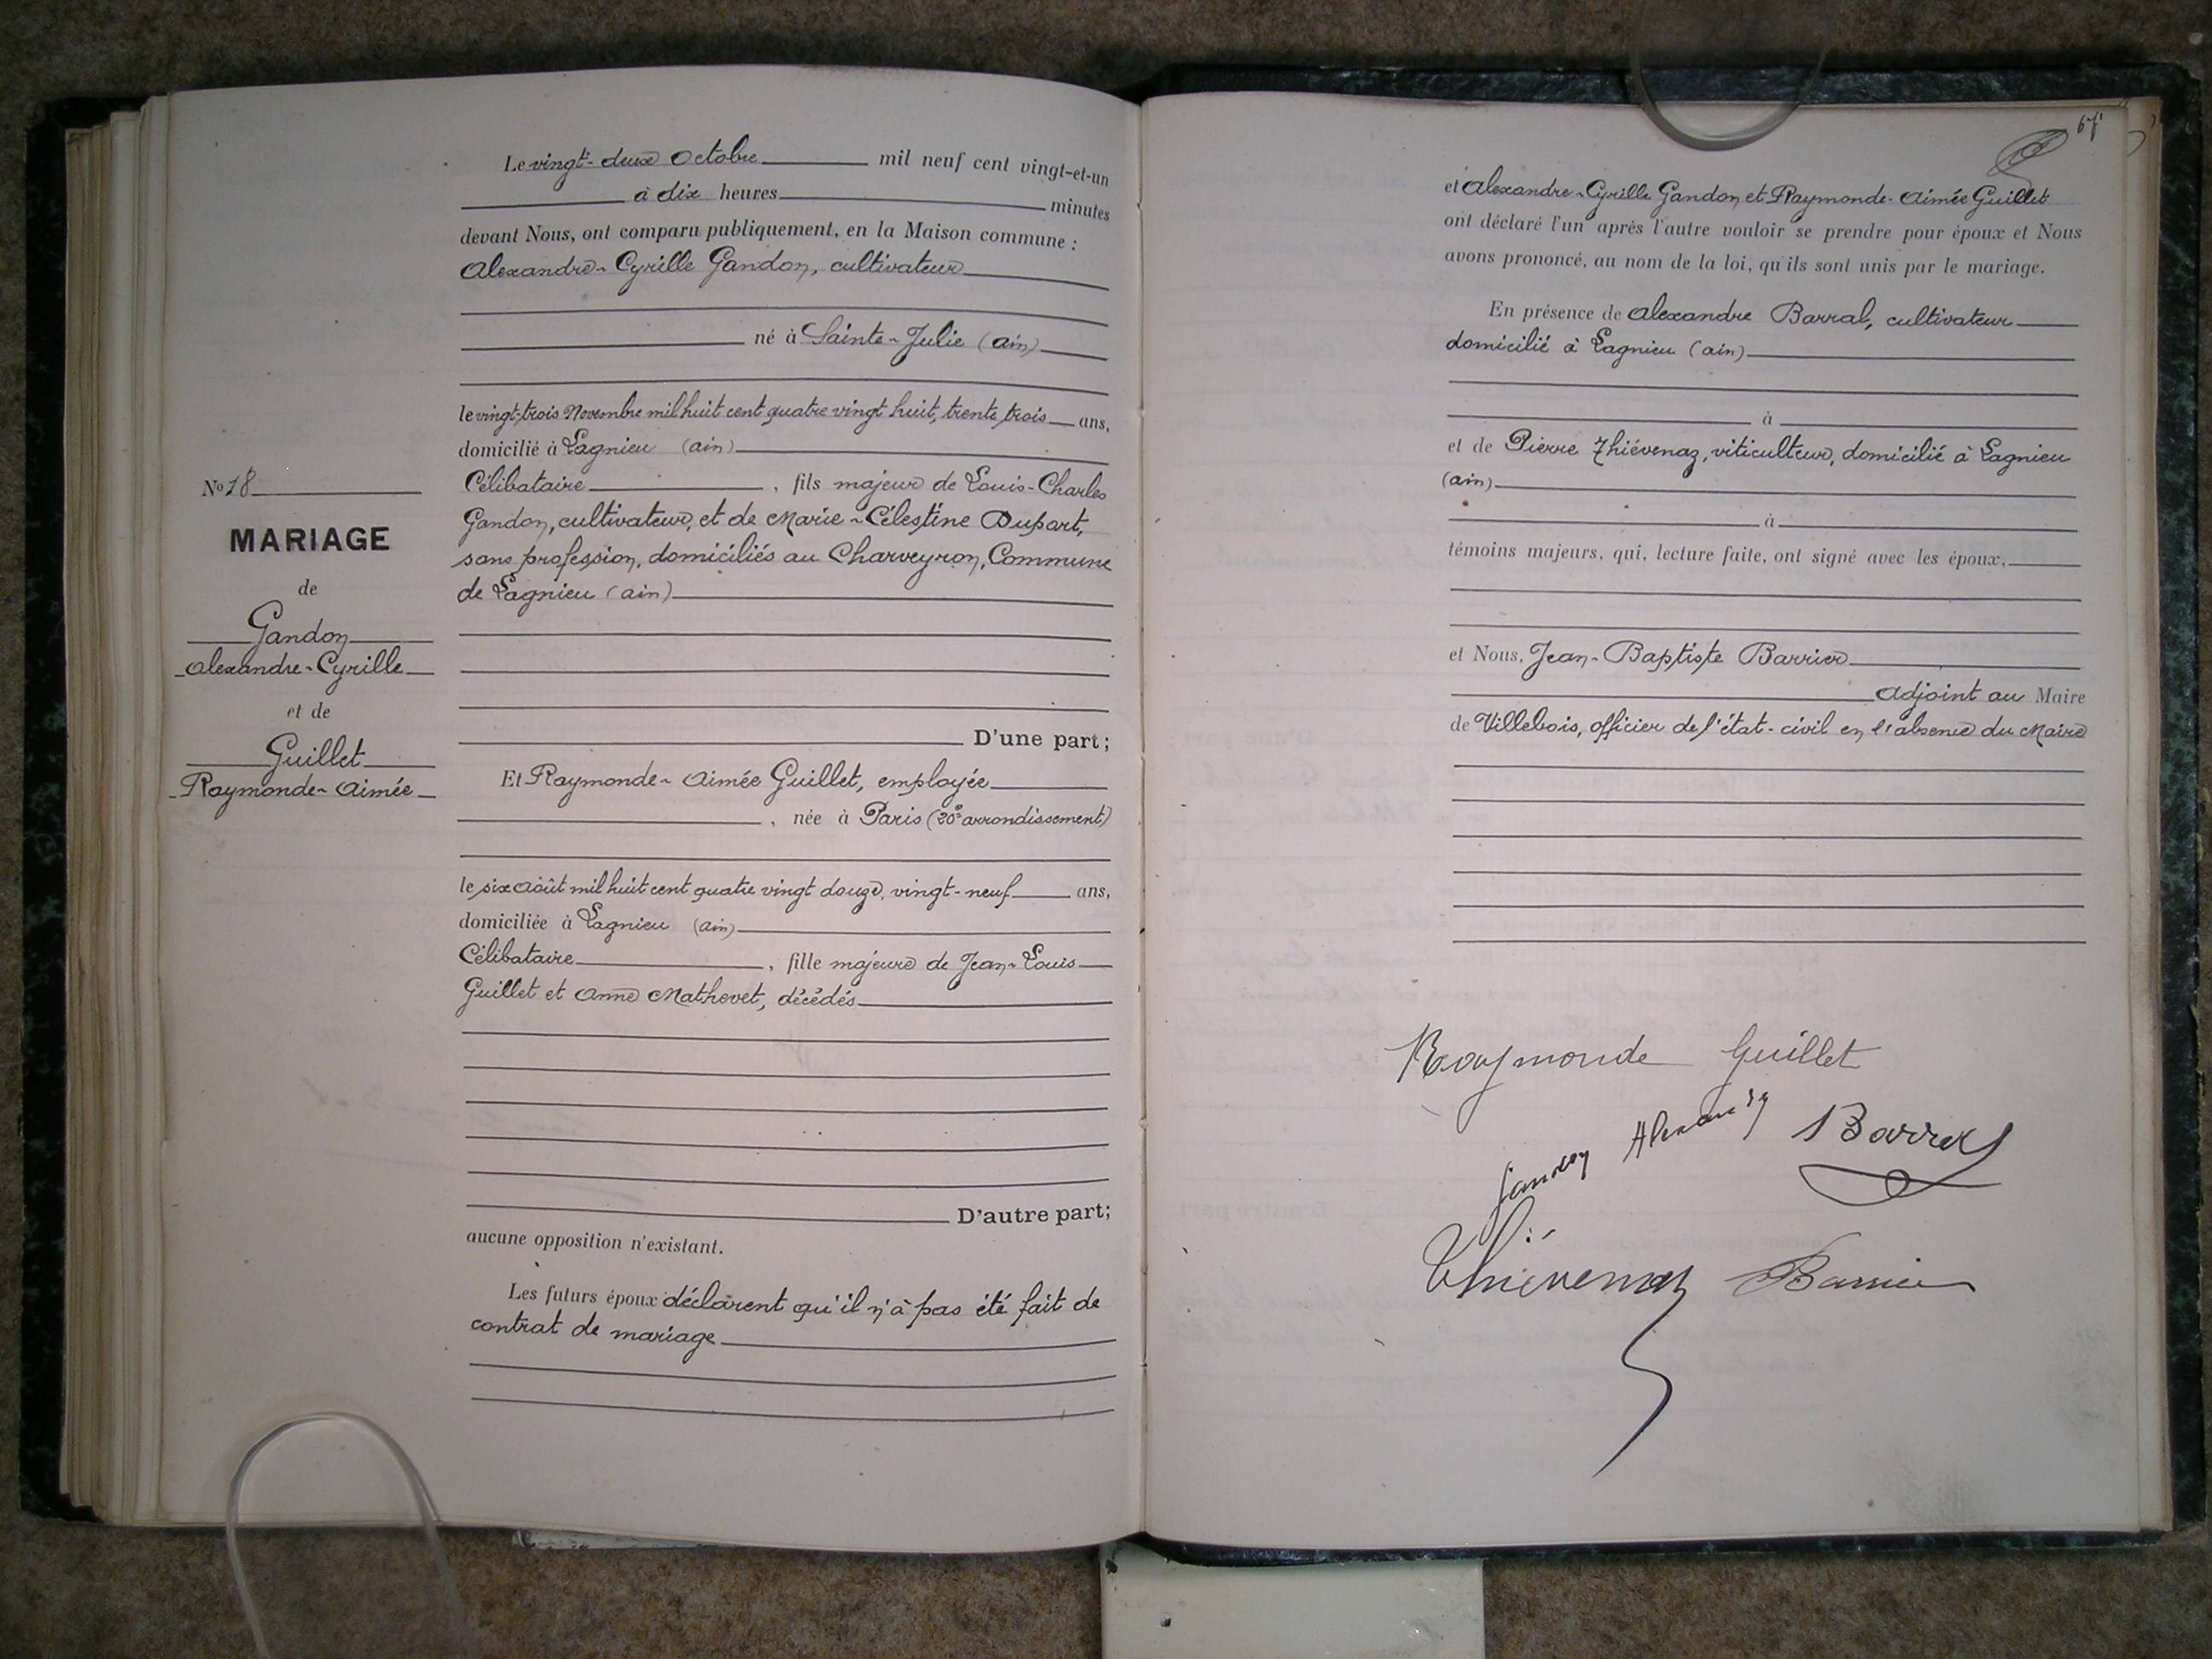 Le vingt-deux Octobre mil neuf cent vingt-et-un
à dix heures minutes
devant Nous, ont comparu publiquement, en la Maison commune :
Alexandre-Cyrille Gandon, cultivateur
né à Sainte-Julie (Ain)
le vingt-trois Novembre mil huit cent quatre vingt huit, trente trois ans,
domicilié à Lagnieu (Ain)
Célibataire, fils majeur de Louis-Charles
Gandon, cultivateur, et de Marie-Célestine Dupart,
sans profession, domiciliés au Charveyron, Commune
de Lagnieu (Ain)
D'une part;
Et Raymonde-Aimée Guillet, employée
, née à Paris (20e arrondissement)
le six Août mil huit cent quatre vingt douze, vingt-neuf ans,
domiciliée à Lagnieu (Ain)
Célibataire, fille majeure de Jean-Louis
Guillet et Anne Mathevet, décédés
D'autre part;
aucune opposition n'existant.
Les futurs époux déclarent qu'il n'a pas été fait de
contrat de mariage
No 18
MARIAGE
de
Gandon
Alexandre-Cyrille
et de
Guillet
Raymonde-Aimée
et Alexandre-Cyrille Gandon et Raymonde-Aimée Guillet
ont déclaré l'un après l'autre vouloir se prendre pour époux et Nous
avons prononcé, au nom de la loi, qu'ils sont unis par le mariage.
En présence de Alexandre Barral, cultivateur
domicilié à Lagnieu (Ain)
à
et de Pierre Thiévenaz, viticulteur, domicilié à Lagnieu
(Ain)
à
témoins majeurs, qui, lecture faite, ont signé avec les époux,
et Nous, Jean-Baptiste Barrier
Adjoint au Maire
de Villebois, officier de l'état-civil en l'absence du Maire
Raymonde Guillet
Gandon Alexandre
Barral
Thiévenaz
Barrier